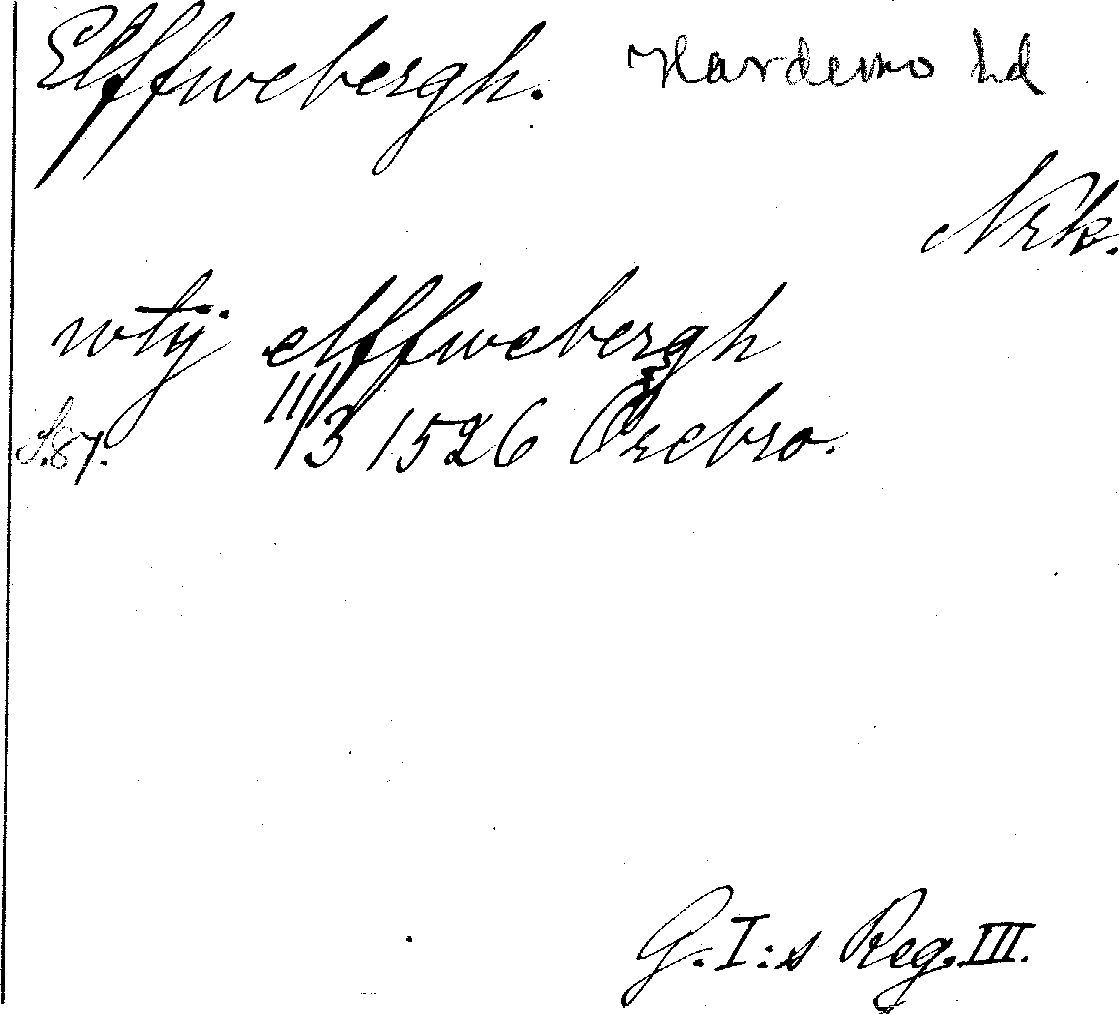 Elffwebergh. Hardemo hd
Nrk.
wtij elffwebergh
S.87. 11/3 1526 Örebro.
G.I:s Reg. III.